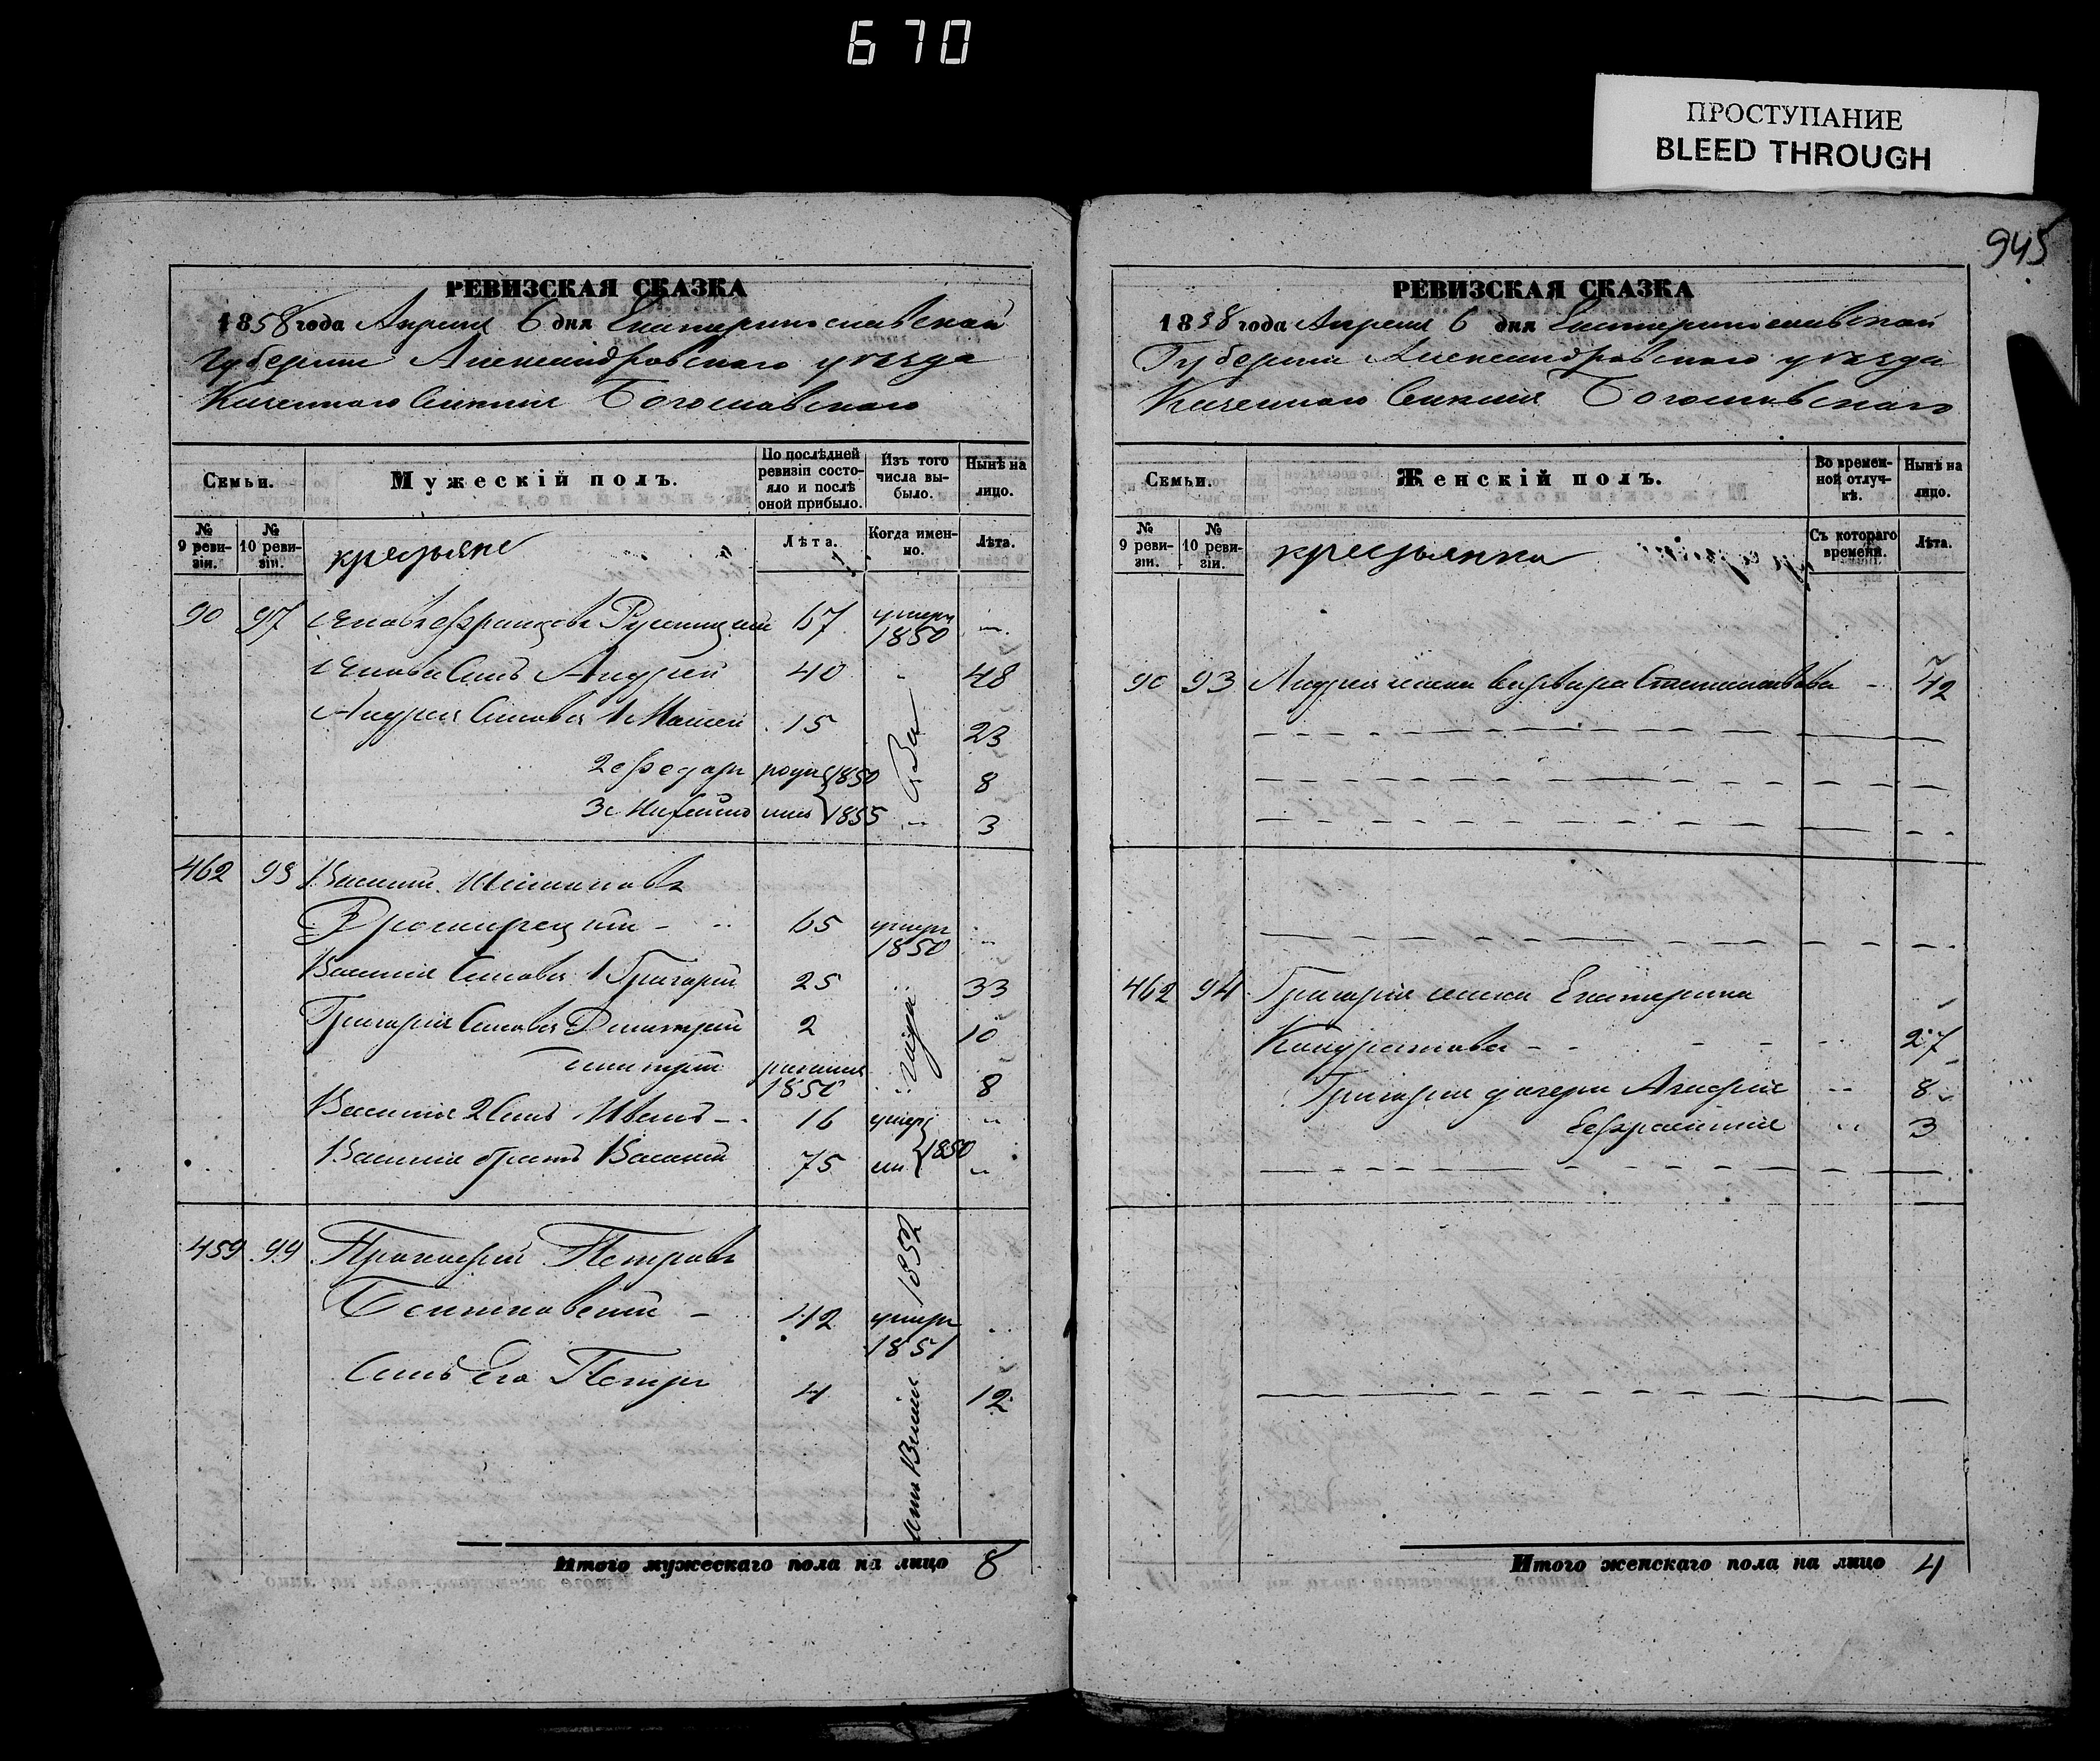 670
ПРОСТУПАНИЕ
BLEED THROUGH
945
РЕВИЗСКАЯ СКАЗКА
1858 года Апреля 6 дня Екатеринославской
Губернии Александровского уезда
Казенного Селения Богословского
Семьи.
Мужескій полъ.
По послѣдней ревизіи состояло и послѣ оной прибыло.
Изъ того числа выбыло.
Нынѣ на лицо.
№ 9 ревизіи.
№ 10 ревизіи.
крестьяне
Лѣта.
Когда именно.
Лѣта.
90 97 Яковъ 67 умеръ 1850
Якова Сынъ Андрей 40 48
Андрея Сыновья 1 Матвей 15 23
2 Федоръ 1850 8
3 1855 3
462 98 Василий
65 умеръ 1850
Василия Сыновья 1 Григорий 25 33
Григория Сыновья Дмитрий 2 10
1850 8
Василия 2 Сынъ Иванъ 16
Василия братъ Василий 75 1850
459 99 Прокофий Петровъ
1852
42 умеръ 1851
Сынъ его Петръ 4 12
Итого мужескаго пола на лицо 8
РЕВИЗСКАЯ СКАЗКА
1858 года Апреля 6 дня Екатеринославской
Губернии Александровского уезда
Казенного Селения Богословского
Семьи.
Женскій полъ.
Во временной отлучкѣ.
Нынѣ на лицо.
№ 9 ревизіи.
№ 10 ревизіи.
крестьянка
Съ котораго времени.
Лѣта.
90 93 Андрея жена Варвара 42
462 94 Григория жена Екатерина
Кондратова 27
Григория дочери 8
3
Итого женскаго пола на лицо 4